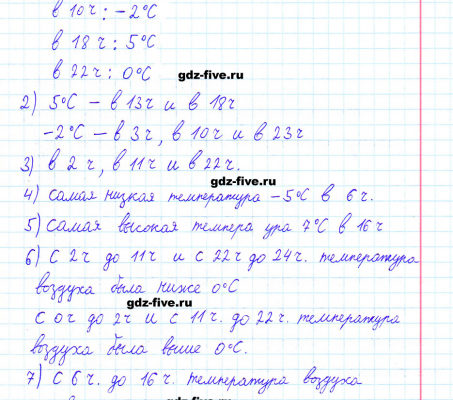 в 10 ч : -2°С
в 18 ч : 5°С
в 22 ч : 0°С
gdz-five.ru
2) 5°С – в 13 ч и в 18 ч
-2°С – в 3 ч, в 10 ч и в 23 ч
3) в 2 ч, в 11 ч и в 22 ч.
gdz-five.ru
4) самая низкая температура -5°С в 6 ч.
5) самая высокая темпера ура 7°С в 16 ч
6) с 2 ч до 11 ч и с 22 ч до 24 ч. температура
воздуха была ниже 0°С
gdz-five.ru
с 0 ч до 2 ч и с 11 ч. до 22 ч. температура
воздуха была выше 0°С.
7) с 6 ч. до 16 ч. температура воздуха
gdz-five.ru